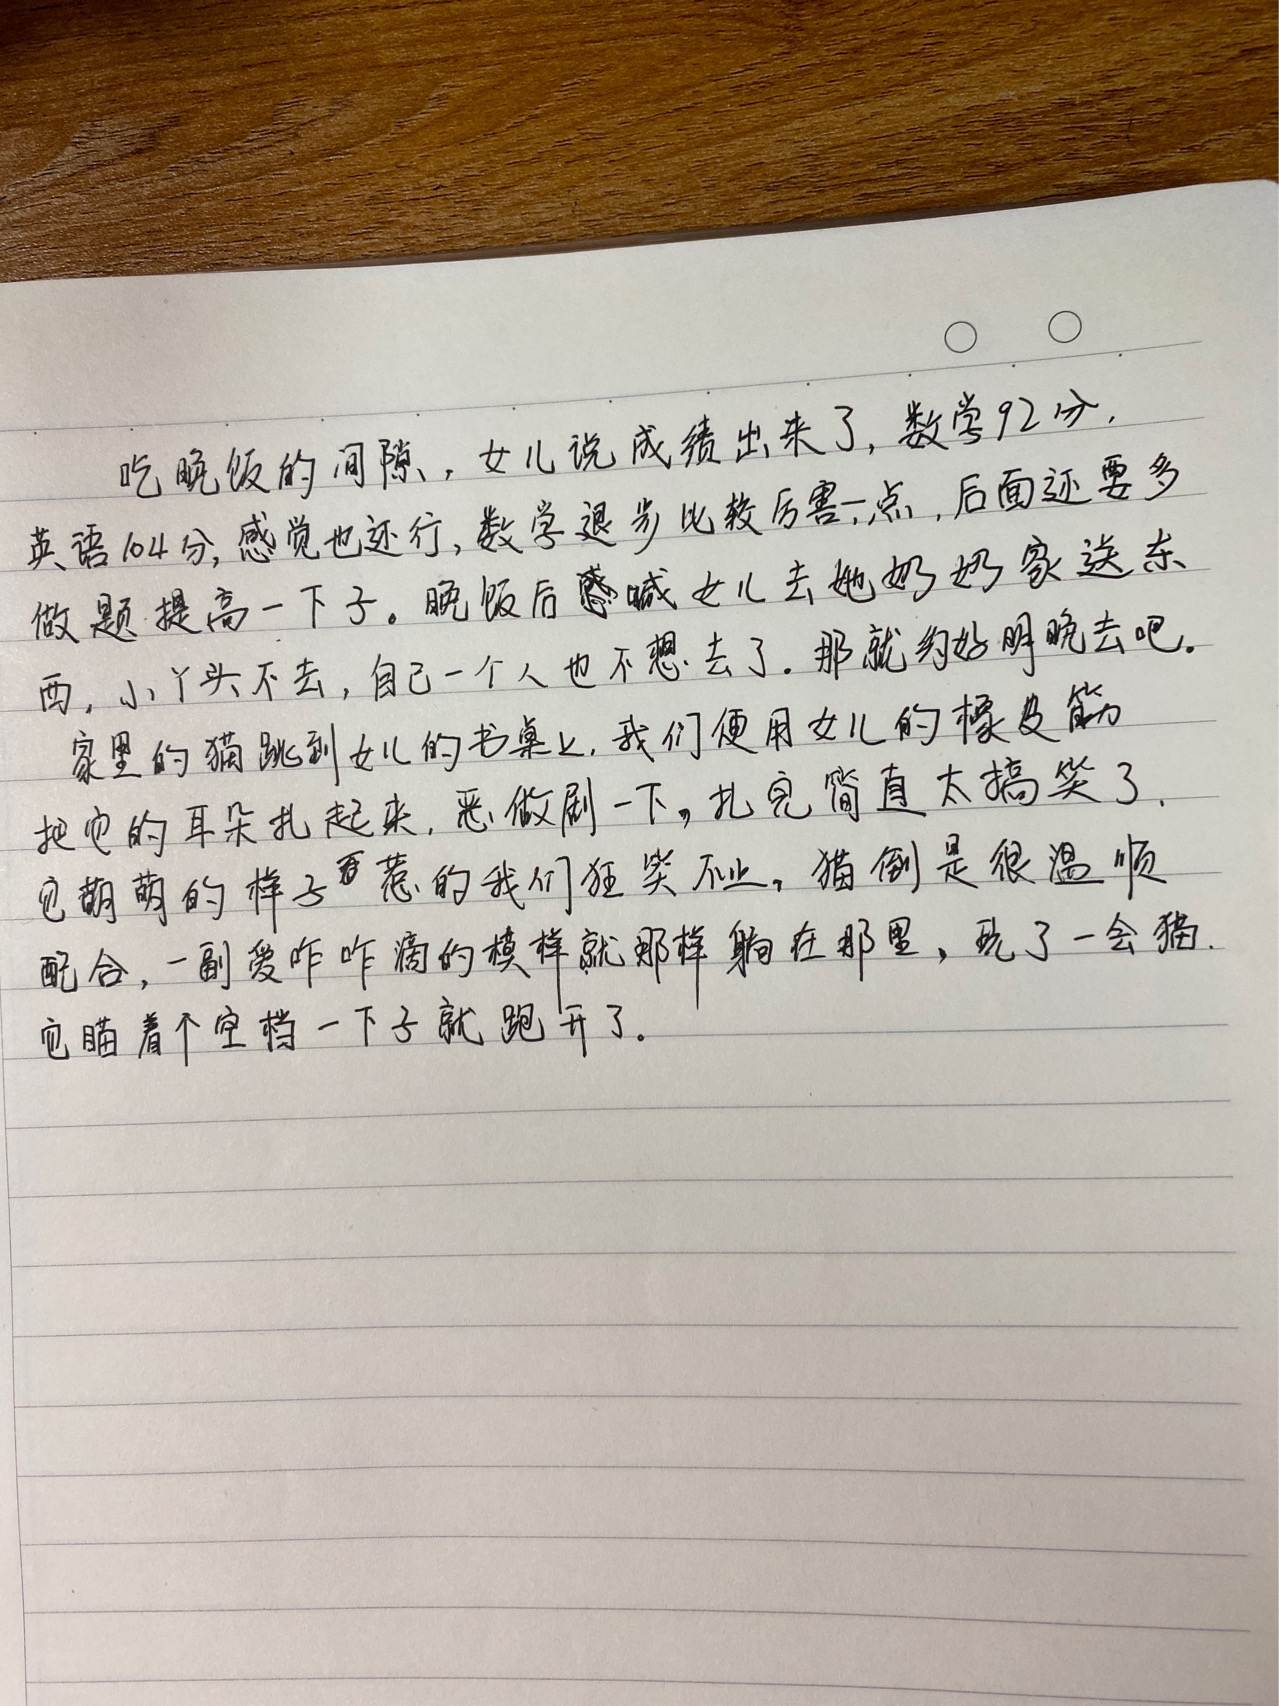 吃晚饭的间隙，女儿说成绩出来了，数学92分，
英语104分，感觉也还行，数学退步比较厉害一点，后面还要多
做题提高一下子。晚饭后喊女儿去她奶奶家送东
西，小丫头不去，自己一个人也不想去了。那就约好明晚去吧。
家里的猫跳到女儿的书桌上，我们便用女儿的橡皮筋
把它的耳朵扎起来，恶做剧一下，扎完简直太搞笑了，
它萌萌的样子惹的我们狂笑不止，猫倒是很温顺
配合，一副爱咋咋滴的模样就那样躺在那里，玩了一会猫，
它瞄着个空档一下子就跑开了。